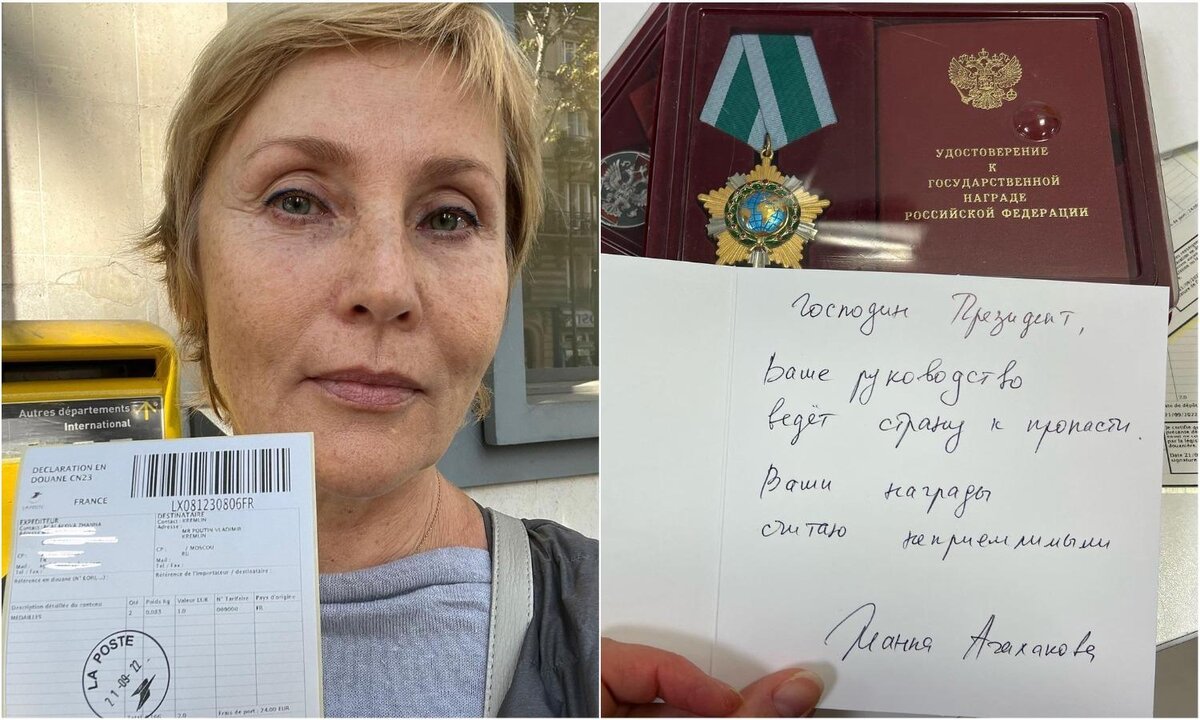 Autres départements
International
DECLARATION EN
DOUANE CN23
FRANCE
LX081230806FR
EXPEDITEUR
DESTINATAIRE
Contact : KREMLIN
Adresse : MR POUTIN VLADIMIR
KREMLIN
CP : / MOSCOU
Mail :
Tel / Fax :
Référence de l'importateur / destinataire :
Description détaillée du contenu Qté Poids Kg Valeur EUR N° Tarifaire Pays d'origine
MEDAILLES 2 0.083 1.0 000000 FR
LA POSTE
Frais de port : 24.00 EUR
УДОСТОВЕРЕНИЕ
К
ГОСУДАРСТВЕННОЙ
НАГРАДЕ
РОССИЙСКОЙ ФЕДЕРАЦИИ
Господин Президент,
Ваше руководство
ведёт страну к пропасти.
Ваши награды
считаю неприемлимыми
Жанна Агалакова